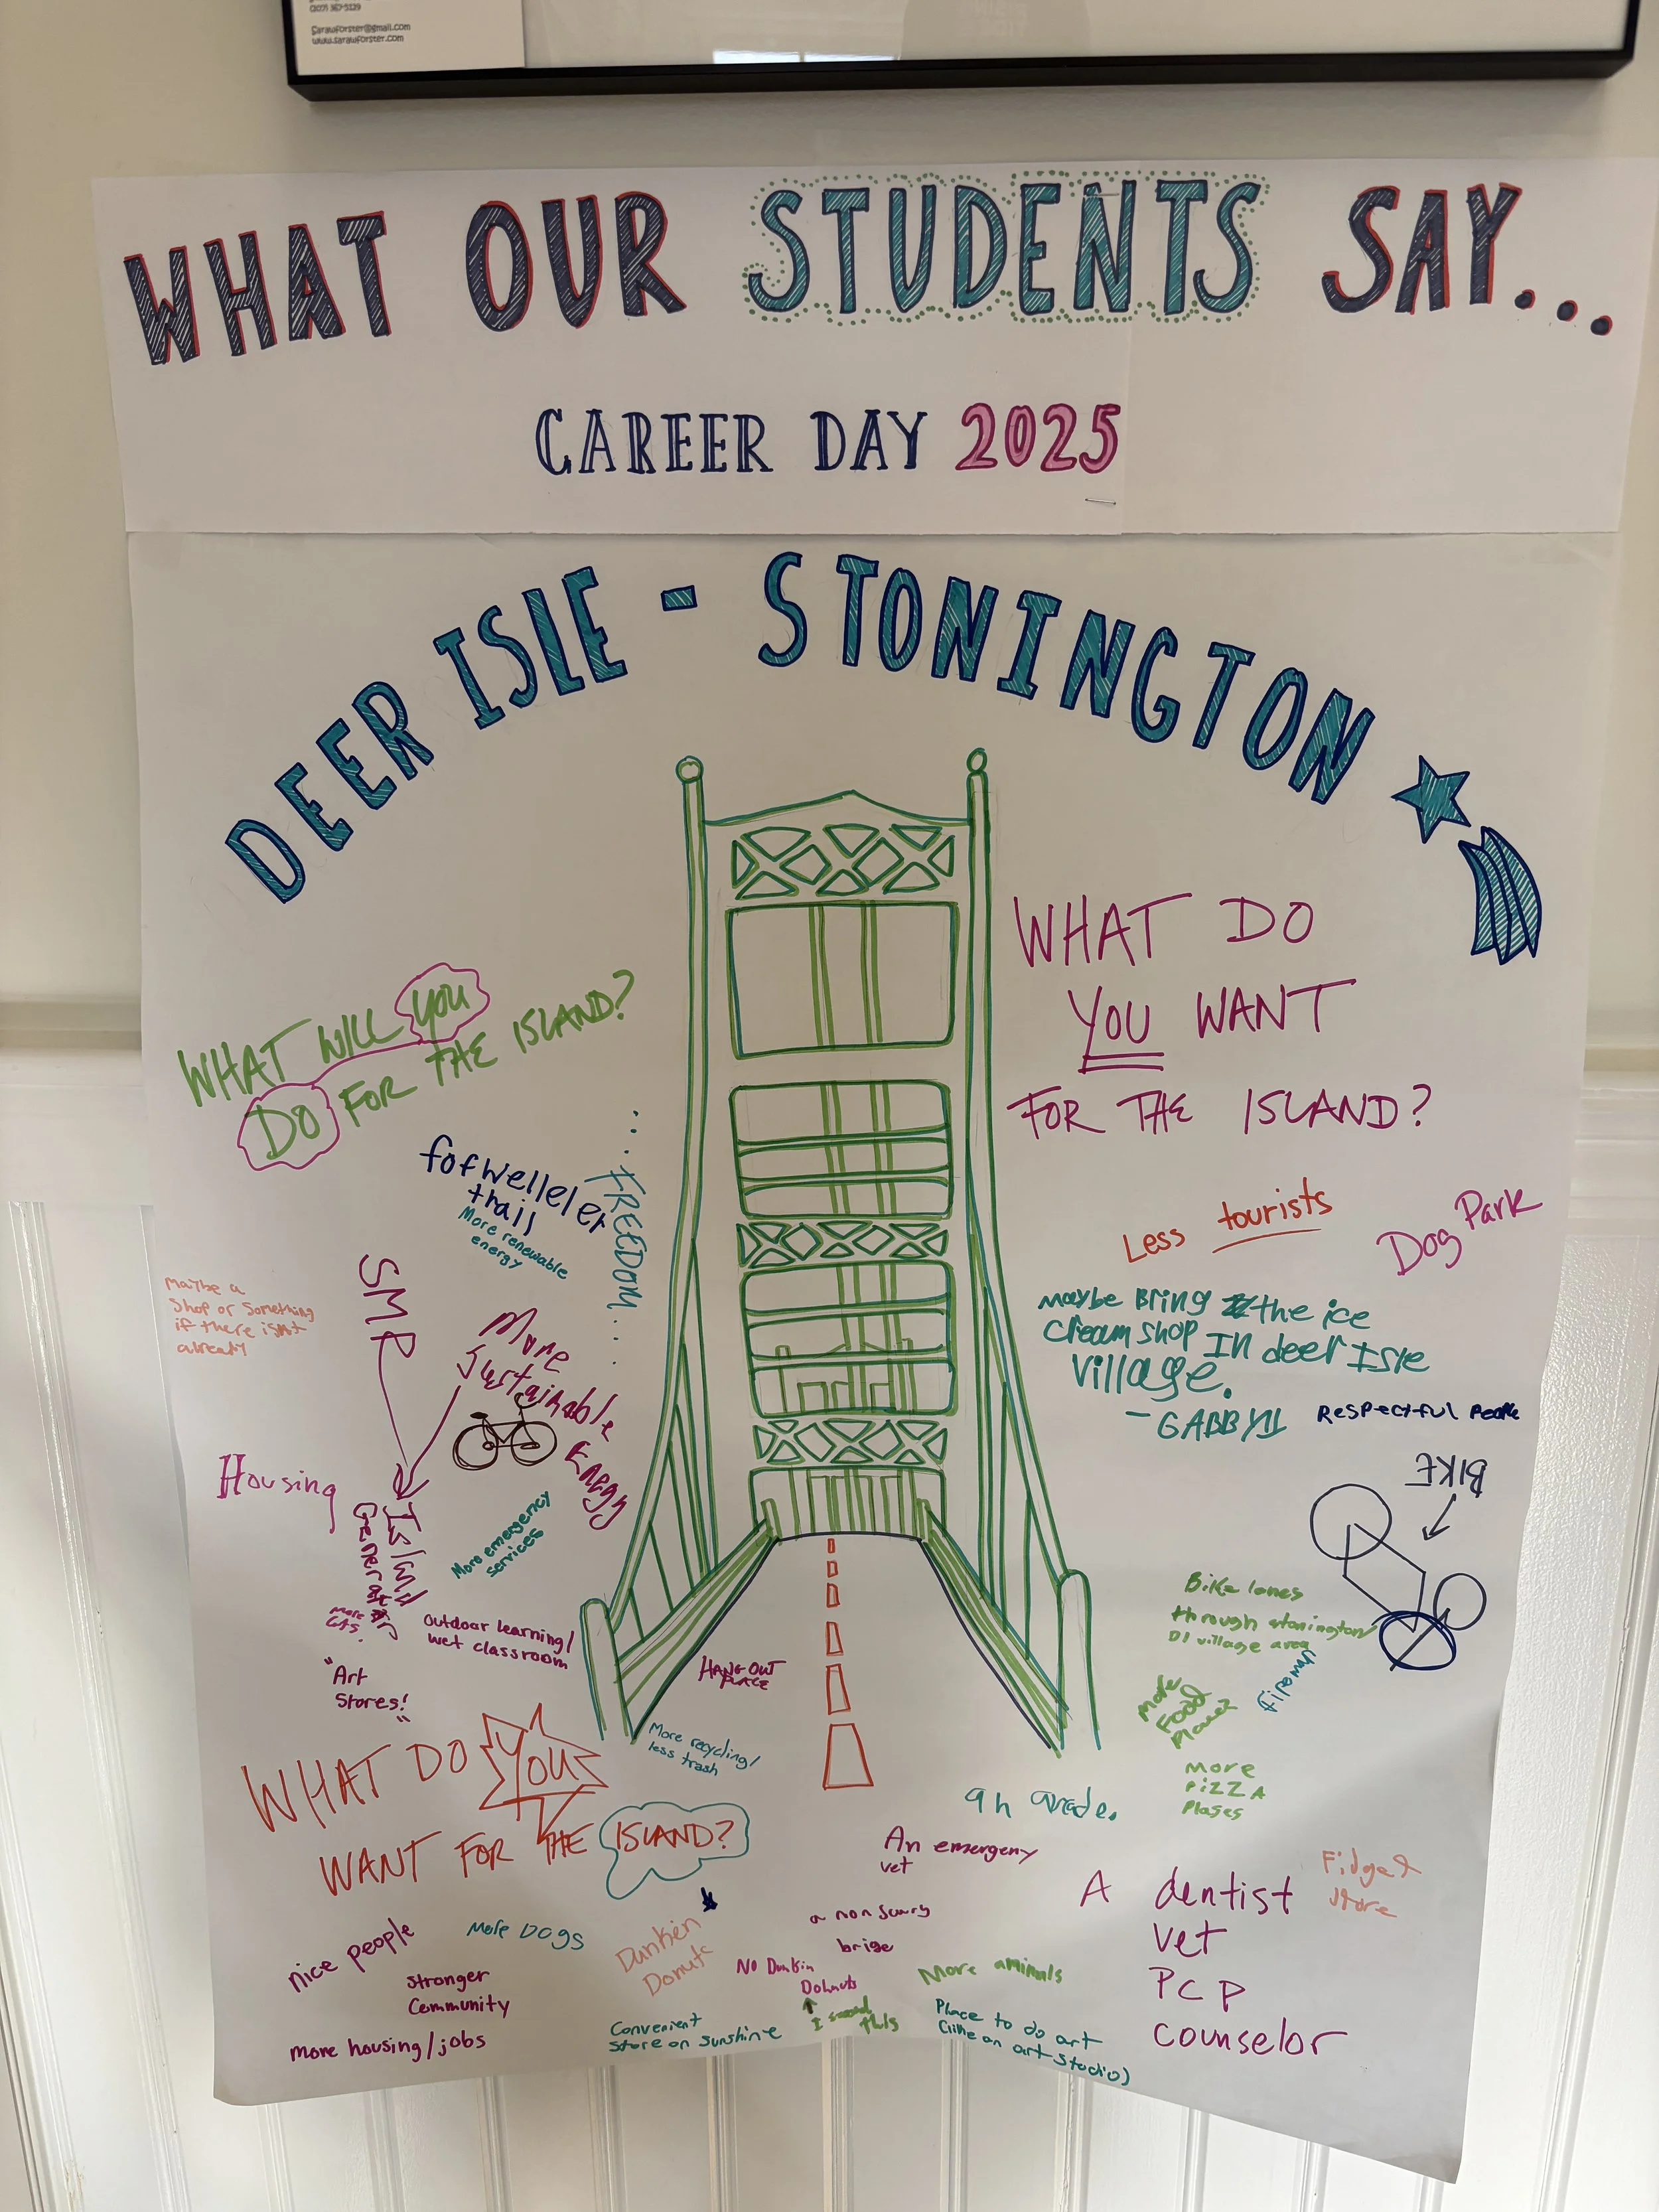 (207) 367-5129
Sarawforster@gmail.com
www.sarawforster.com
WHAT OUR STUDENTS SAY...
CAREER DAY 2025
DEER ISLE - STONINGTON
WHAT WILL YOU
DO FOR THE ISLAND?
fofwelleler
thail
More renewable
energy
...FREEDOM...
SMR
Maybe a
Shop or Something
if there isnt
already
More
Sustainable
Energy
Housing
Island
Generator
More emergency
services
More
Outdoor learning/
wet classroom
"Art
Stores!"
WHAT DO YOU
WANT FOR THE ISLAND?
HANG OUT
PLACE
More recycling/
less trash
nice people
More DOGS
Stronger
Community
more housing/jobs
Dunkin
Donuts
Convenient
Store on Sunshine
WHAT DO
YOU WANT
FOR THE ISLAND?
Less tourists
Dog Park
Maybe Bring the ice
cream shop In deer Isle
Village.
- GABBY
Respectful People
BIKE
Bike lanes
through stonington
DI village area
More
Food
Places
More
PiZZA
Plases
9h Grade.
An emergeny
vet
a non scary
brige
No Dunkin
Dohnuts
I second
this
More animals
Place to do art
(like an art studio)
A dentist
vet
PCP
counselor
Fidget
store